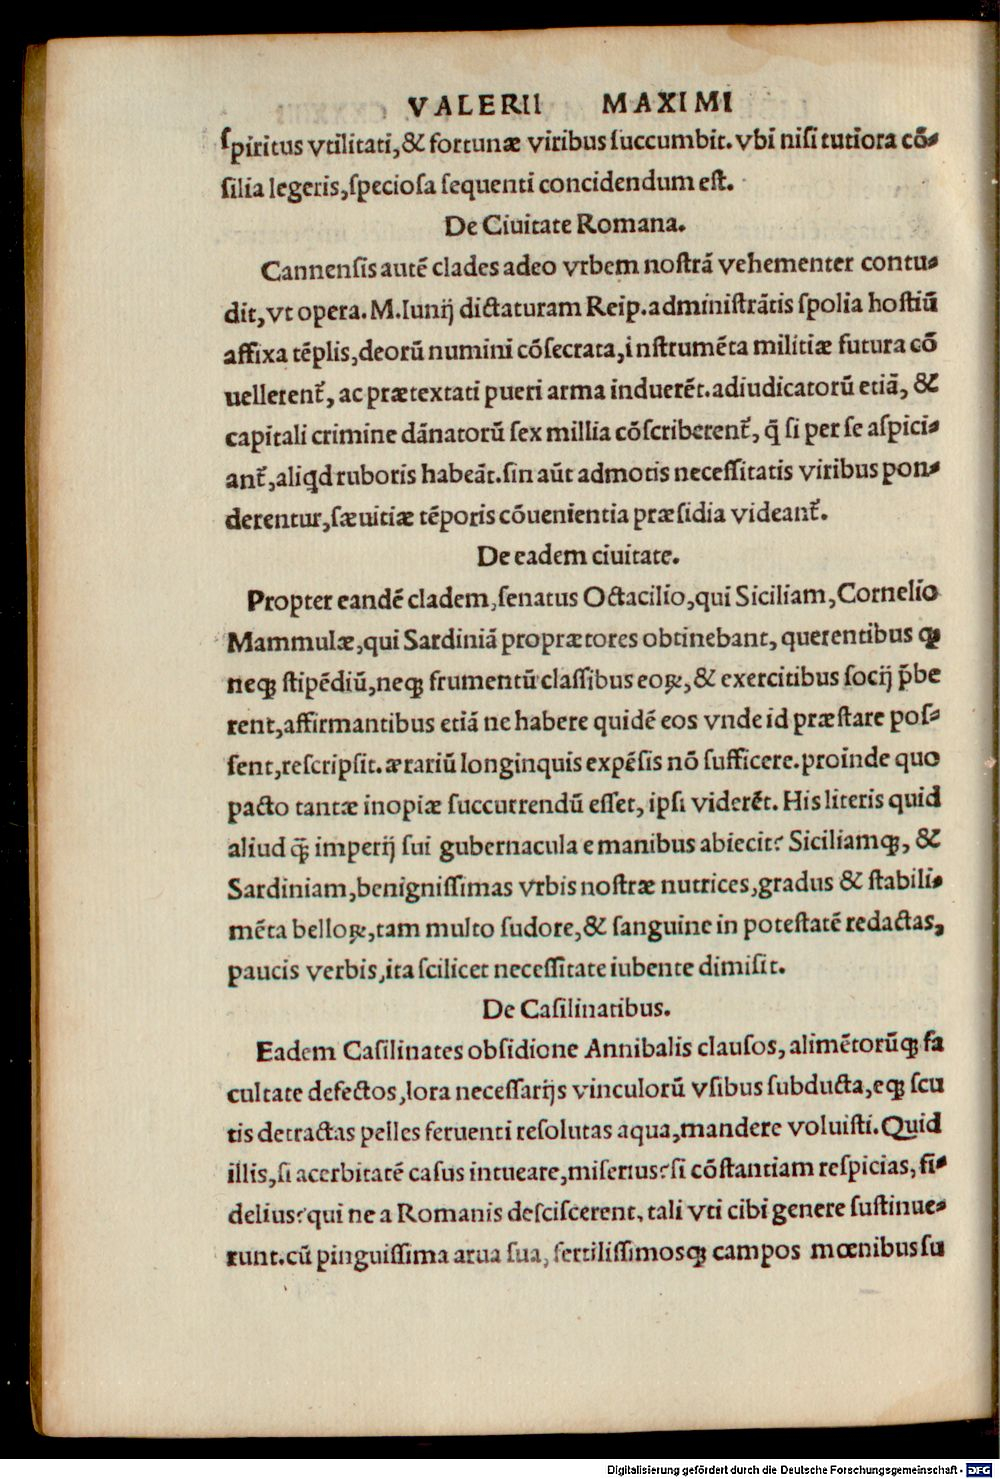 VALERII MAXIMI
ſpiritus vtilitati,& fortunæ viribus ſuccumbit. vbi niſi tutiora cõ-
ſilia legeris,ſpecioſa ſequenti concidendum eſt.
De Ciuitate Romana.
Cannenſis autẽ clades adeo vrbem noſtrã vehementer contu-
dit,vt opera. M.Iunij dictaturam Reip.adminiſtrãtis ſpolia hoſtiũ
affixa tẽplis,deorũ numini cõſecrata,inſtrumẽta militiæ futura cõ
uellerent᷑, ac prætextati pueri arma induerẽt.adiudicatorũ etiã, &
capitali crimine dãnatorũ ſex millia cõſcriberent᷑, q̃ ſi per ſe aſpici-
ant᷑,aliqd ruboris habeãt.ſin aũt admotis neceſſitatis viribus pon-
derentur,ſæuitiæ tẽporis cõuenientia præſidia videant᷑.
De eadem ciuitate.
Propter eandẽ cladem,ſenatus Octacilio,qui Siciliam,Cornelio
Mammulæ,qui Sardiniã proprætores obtinebant, querentibus ꝙ
neqꝫ ſtipẽdiũ,neqꝫ frumentũ claſſibus eoꝝ,& exercitibus ſocij p̃be
rent,affirmantibus etiã ne habere quidẽ eos vnde id præſtare poſ-
ſent,reſcripſit.ærariũ longinquis expẽſis nõ ſufficere.proinde quo
pacto tantæ inopiæ ſuccurrendũ eſſet, ipſi viderẽt. His literis quid
aliud q̃ imperij ſui gubernacula e manibus abiecit? Siciliamqꝫ, &
Sardiniam,benigniſſimas vrbis noſtræ nutrices,gradus & ſtabili-
mẽta belloꝝ,tam multo ſudore,& ſanguine in poteſtatẽ redactas,
paucis verbis,ita ſcilicet neceſſitate iubente dimiſit.
De Caſilinatibus.
Eadem Caſilinates obſidione Annibalis clauſos, alimẽtorũqꝫ fa
cultate defectos,lora neceſſarijs vinculorũ vſibus ſubducta,eqꝫ ſcu
tis detractas pelles feruenti reſolutas aqua,mandere voluiſti.Quid
illis,ſi acerbitatẽ caſus intueare,miſerius?ſi cõſtantiam reſpicias, fi-
delius?qui ne a Romanis deſciſcerent, tali vti cibi genere ſuſtinue-
runt.cũ pinguiſſima arua ſua, fertiliſſimosqꝫ campos mœnibus ſu
Digitalisierung gefördert durch die Deutsche Forschungsgemeinschaft - DFG